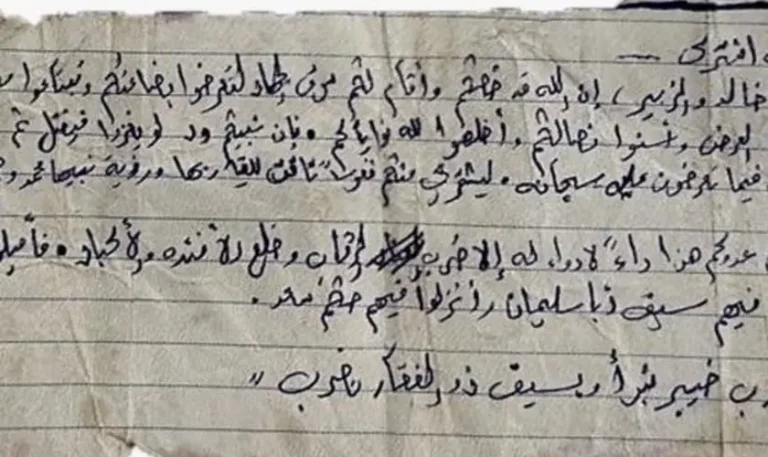 افترى —
خالد والزبير، إن الله قد خصكم وأقام لكم سوق جهاد لتعرضوا بضاعتكم وتبتاعوا
العرض وأحسنوا نصالكم وأخلصوا لله نواياكم. فإن نبيكم ود لو يغزو فيقتل ثم
فيما تعرضون عليه سبحانه. ليشتري منكم نفوساً تاقت للقاء ربها ورؤية نبيها محمد
عدوكم هذا داء لا دواء له إلا ضرب الرقاب وخلع الأفئدة والأكباد.
فيهم سيف أبا سليمان وأنزلوا فيهم حكم سعد.
خيبر نبرأ وبسيف ذو الفقار نضرب "